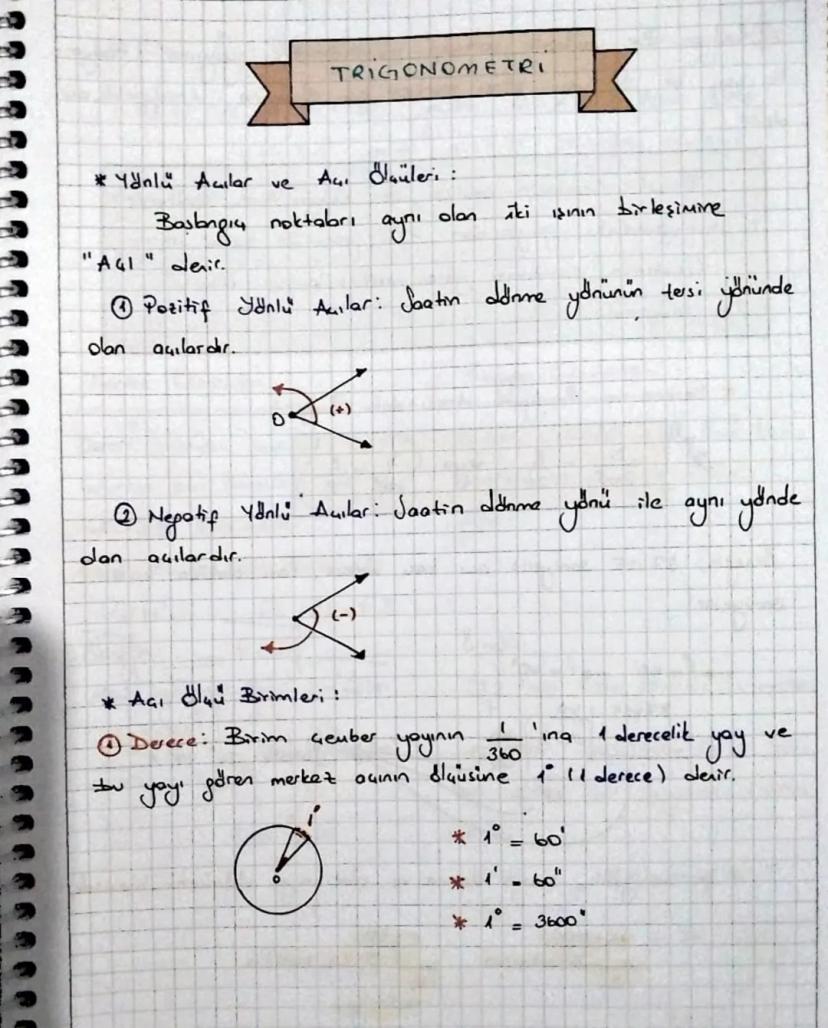 TRİGONOMETRİ
* Yönlü Açılar ve Açı Ölçüleri :
Başlangıç noktaları aynı olan iki ışının birleşimine
"AÇI" denir.
① Pozitif Yönlü Açılar: Saatin dönme yönünün tersi yönünde
olan açılardır.
O (+)
② Negatif Yönlü Açılar: Saatin dönme yönü ile aynı yönde
olan açılardır.
(-)
* Açı Ölçü Birimleri :
① Derece: Birim çember yayının 1/360 'ına 1 derecelik yay ve
bu yayı gören merkez açının ölçüsüne 1° (1 derece) denir.
1°
O
* 1° = 60'
* 1' = 60"
* 1° = 3600"